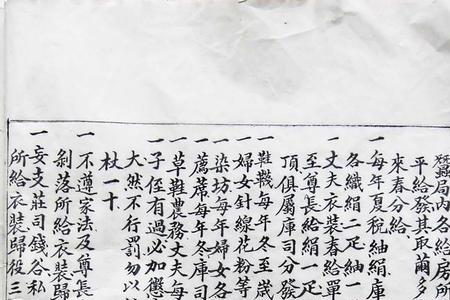 蠶局內各給房所
平給發其取繭多
來春分給
一每年夏稅紬絹庫
各織絹二疋紬一
一丈夫衣裝春給單
至尊長給絹一疋
頂俱屬庫司分發
一鞋襪每年冬至歲
一婦女針線花粉等
一染坊每年婦女各
一薦蓆每年冬庫司
一草鞋農務丈夫每
一子侄有過必加懲
大然不行罰勿以
杖一十
一不遵家法及尊長
剝落所給衣裝歸
一妄支莊司錢谷私
所給衣裝歸役三